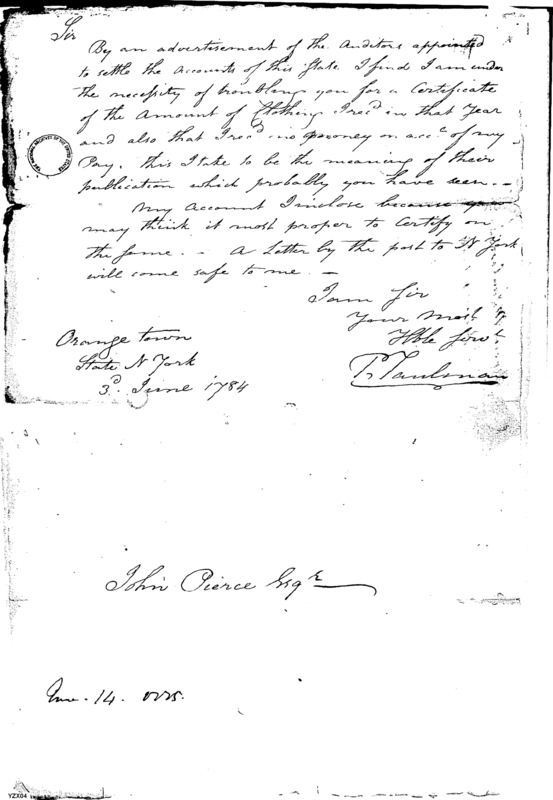 Sir
By an advertisement of the Auditors appointed
to settle the accounts of this State I find I am under
the necessity of troubling you for a Certificate
of the Amount of Clothing I recd in that Year
and also that I recd no money on acct of my
Pay. this I take to be the meaning of their
publication which probably you have seen. -
My Account I inclose because you
may think it most proper to Certify on
the same. - A Letter by the post to N York
will come safe to me -
I am Sir
Your Most
Hble Servt
Orange town
State N York
3d June 1784
John Pierce Esqr
14.
YZX04